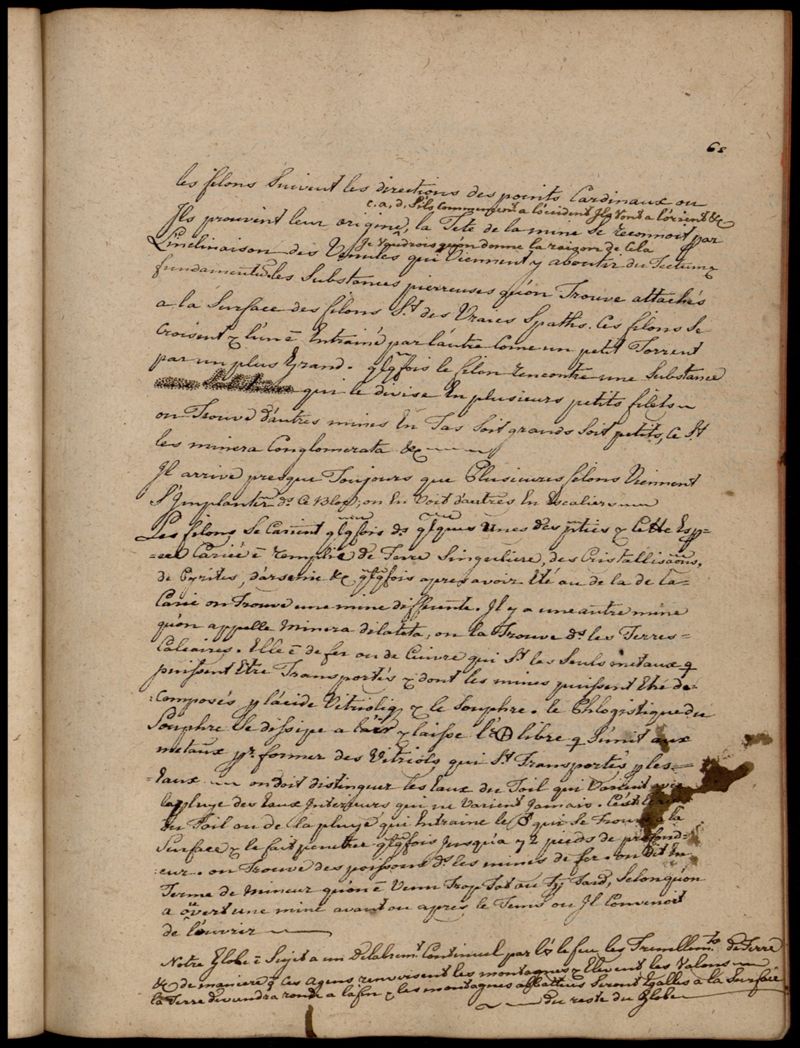 61
les filons Suivent les directions des points Cardinaux ou
c.a.d. S'ils Commencent a l'occident Ils Vont a l'orient &c
Ils prouvent leur origine, la Tete de la mine Se reconnoit par
Je Voudrois qu'on donne la raizon de Cela
L'inclinaison des Venules qui Viennent y aboutir du Tectum &
fundamentu, les Substances pierreuses qu'on Trouve attachés
a la Surface des filons St des Vraies Spaths. Ces filons Se
Croisent & l'un ē Entrainé par l'autre Come un petit Torrent
par un plus Grand. qlqfois le filon rencontre une Substance
qui le divise En plusieurs petits filets
on Trouve d'autres mines En Tas Soit grands Soit petits, Ce St
les minera Conglomerata &c
Il arrive presque Toujours que Plusieures filons Viennent
S'Implanter ds Ce Bloc, on En Voit d'autres En Escaliers
Les filons Se Carient qlqfois ds qlques unes des pties & Cette Esp-
-ece Cariée ē remplie de Terre Singuliere, des Cristallisaons,
de Pyrites, d'arsenic &c qlqfois apres avoir Eté au de la de la
Carie on Trouve une mine differente. Il y a une autre mine
qu'on appelle Minera dilatata, on la Trouve ds les Terres
Calcaires. Elle ē de fer ou de Cuivre qui St les Seuls metaux q
puissent Etre Transportés & dont les mines puissent Eté dé-
-composés p l'acide Vitrioliq & le Souphre. le Phlogistique du
Souphre Se dissipe a l'air & laisse l' libre q S'unit aux
metaux pr former des Vitriols qui St Transportés p les
Eaux on doit distinguer les Eaux du Soil qui Varient avec
la pluye des Eaux Interieurs qui ne Varient Jamais. C'est
du Soil ou de la pluye qui Entraine le qui Se Trouve a la
Surface & le fait penetrer qlqfois Jusqu'a 72 pieds de profond-
eur. on Trouve des poissons ds les mines de fer. on dit En
Terme de Mineur qu'on ē Venu Trop Tot ou Trop Tard, Selon qu'on
a overt une mine avant ou après le Tems ou Il Convenoit
de l'ouvrir
Notre Globe ē Sujet a un Delabremt Continuel par l' le feu les Tremblemts de Terre
&c de maniere q Ces agens renversent les montagnes & Elevent les Valons
la Terre deviendra ronde a la fin & les montagnes abbattues Seront Egalles a la Surface
du reste du Globe